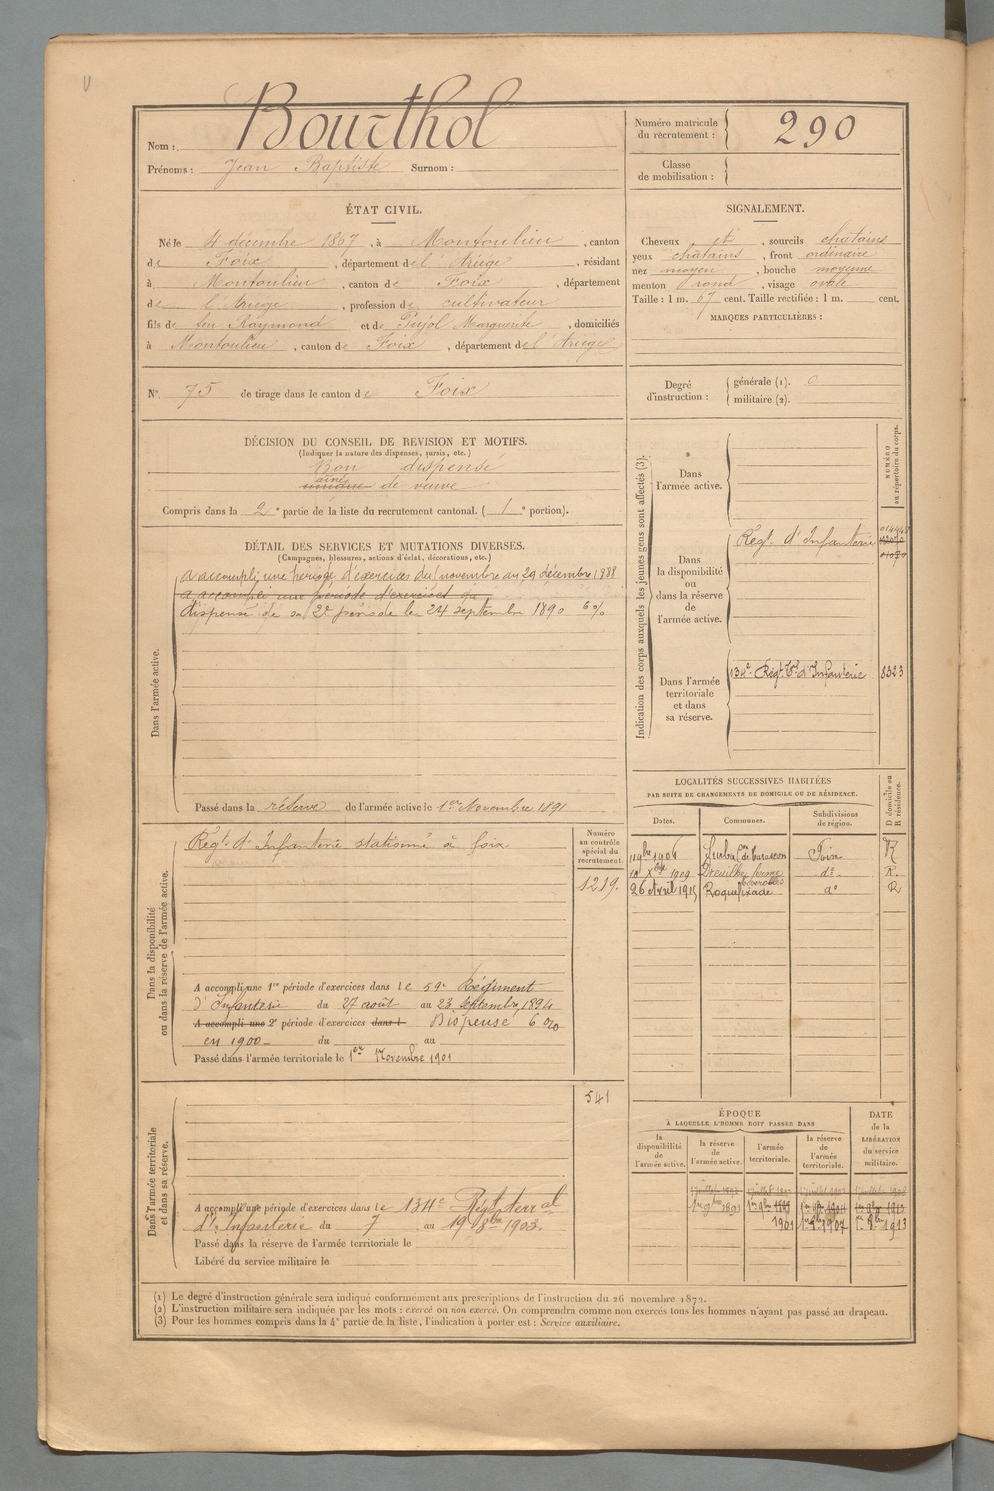 Bourthol
Nom :
Prénoms : Jean Baptiste Surnom :
Numéro matricule du recrutement : 290
Classe de mobilisation :
ÉTAT CIVIL.
Né le 4 décembre 1867, à Montoulieu, canton
de Foix, département de l'Ariège, résidant
à Montoulieu, canton de Foix, département
de l'Ariège, profession de cultivateur
fils de feu Raymond et de Pujol Marguerite, domiciliés
à Montoulieu, canton de Foix, département de l'Ariège
N° 75 de tirage dans le canton de Foix
SIGNALEMENT.
Cheveux et, sourcils chatains
yeux chatains, front ordinaire
nez moyen, bouche moyenne
menton rond, visage ovale
Taille : 1 m. 67 cent. Taille rectifiée : 1 m. cent.
MARQUES PARTICULIÈRES :
Degré d'instruction : générale (1). 0
militaire (2).
DÉCISION DU CONSEIL DE REVISION ET MOTIFS.
(Indiquer la nature des dispenses, sursis, etc.)
Bon dispensé
aîné
de veuve
Compris dans la 2e partie de la liste du recrutement cantonal. (1e portion).
DÉTAIL DES SERVICES ET MUTATIONS DIVERSES.
(Campagnes, blessures, actions d'éclat, décorations, etc.)
Dans l'armée active.
a accompli une période d'exercices du 1 novembre au 29 décembre 1888
a accompli une période d'exercices du
dispensé de sa 2e période le 24 septembre 1890 6 %
Passé dans la réserve de l'armée active le 1er Novembre 1891
Indication des corps auxquels les jeunes gens sont affectés (3).
NUMÉRO au répertoire du corps.
Dans l'armée active.
Dans la disponibilité ou dans la réserve de l'armée active.
Régt. d'Infanterie
Dans l'armée territoriale et dans sa réserve.
134e Régt. Tal d'Infanterie 8323
Dans la disponibilité ou dans la réserve de l'armée active.
Régt. d'Infanterie stationné à foix
Numéro au contrôle spécial du recrutement.
1219.
A accompli une 1re période d'exercices dans le 59e Régiment
d'Infanterie du 27 août au 23 septembre 1894
A accompli une 2e période d'exercices dans l Dispensé 6 0/0
en 1900 du au
Passé dans l'armée territoriale le 1er Novembre 1901
LOCALITÉS SUCCESSIVES HABITÉES
PAR SUITE DE CHANGEMENTS DE DOMICILE OU DE RÉSIDENCE.
Dates. Communes. Subdivisions de région. D domicile ou R résidence.
Foix R
1909 ferme do R.
26 Avril 1915 Roquefixade do R
Dans l'armée territoriale et dans sa réserve.
541
A accompli une période d'exercices dans le 134e Régt terral
d'Infanterie du 7 au 19 8bre 1903.
Passé dans la réserve de l'armée territoriale le
Libéré du service militaire le
ÉPOQUE
À LAQUELLE L'HOMME DOIT PASSER DANS
la disponibilité de l'armée active. la réserve de l'armée active. l'armée territoriale. la réserve de l'armée territoriale.
DATE de la LIBÉRATION du service militaire.
1er 9bre 1891
1901 1907 1913
(1) Le degré d'instruction générale sera indiqué conformément aux prescriptions de l'instruction du 26 novembre 1872.
(2) L'instruction militaire sera indiquée par les mots : exercé ou non exercé. On comprendra comme non exercés tous les hommes n'ayant pas passé au drapeau.
(3) Pour les hommes compris dans la 4e partie de la liste, l'indication à porter est : Service auxiliaire.